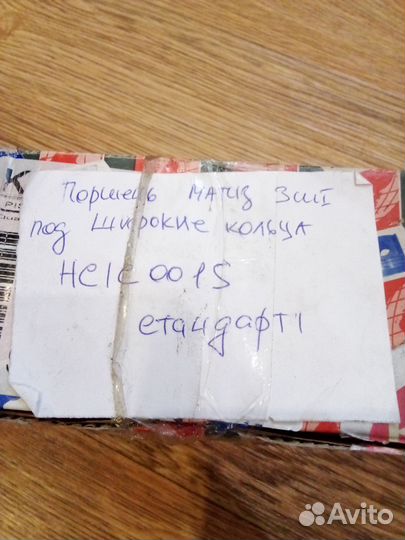 K
PIS
Поршень МАТИЗ 3шт
под широкие кольца
HCIC001S
стандарт1
Avito